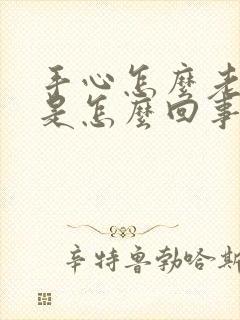 手心怎麼老
是怎麼回事
辛特魯勃哈斯